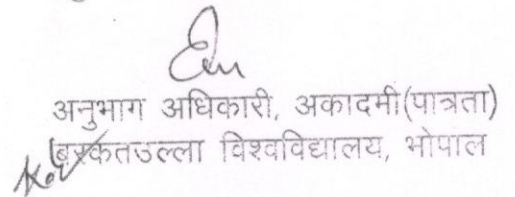 अनुभाग अधिकारी, अकादमी(पात्रता)
बरकतउल्ला विश्वविद्यालय, भोपाल